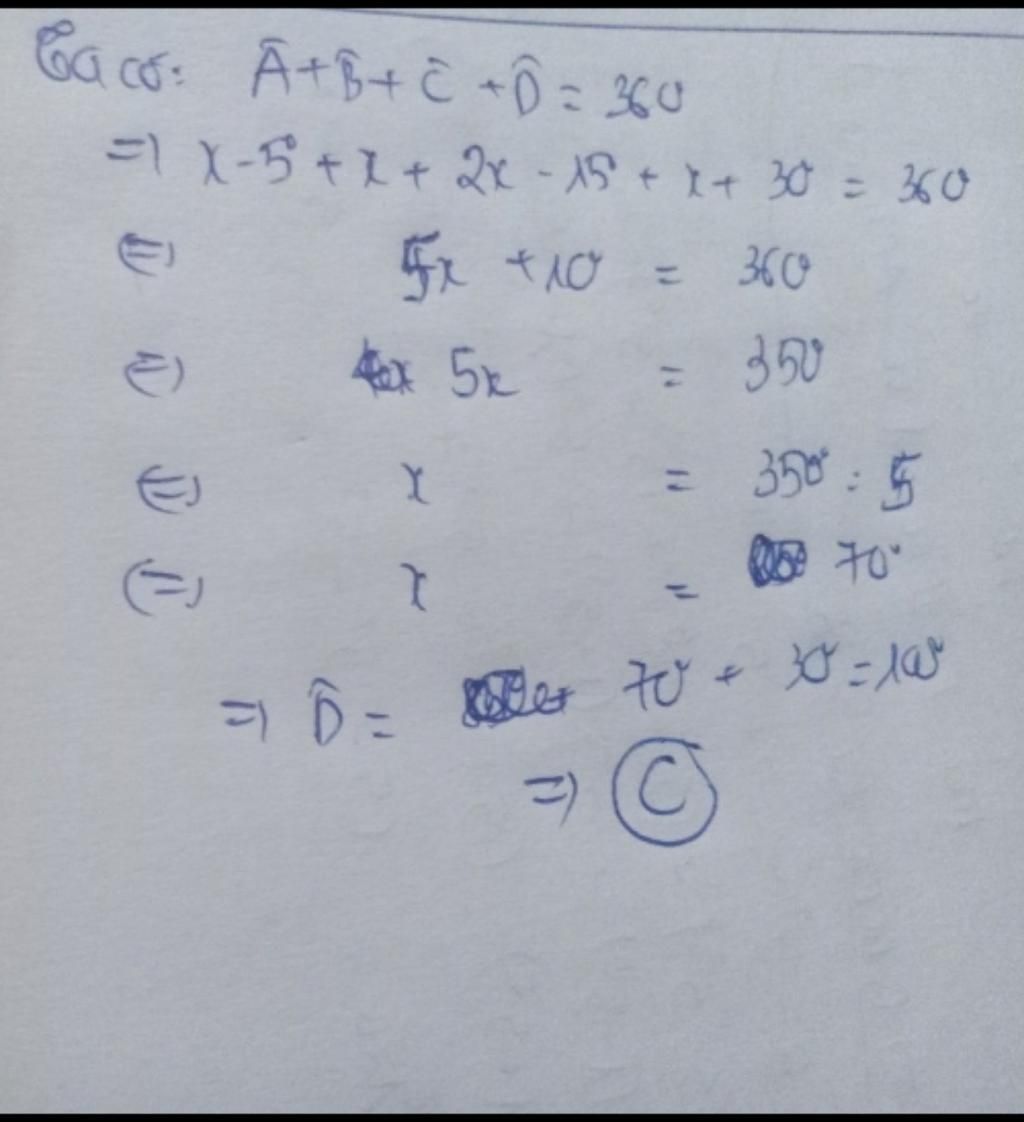 Ta có: Â + B̂ + Ĉ + D̂ = 360°
=> x - 5° + x + 2x - 15° + x + 30° = 360°
<=> 5x + 10° = 360°
<=> 5x = 350°
<=> x = 350° : 5
<=> x = 70°
=> D̂ = 70° + 30° = 100°
=> C